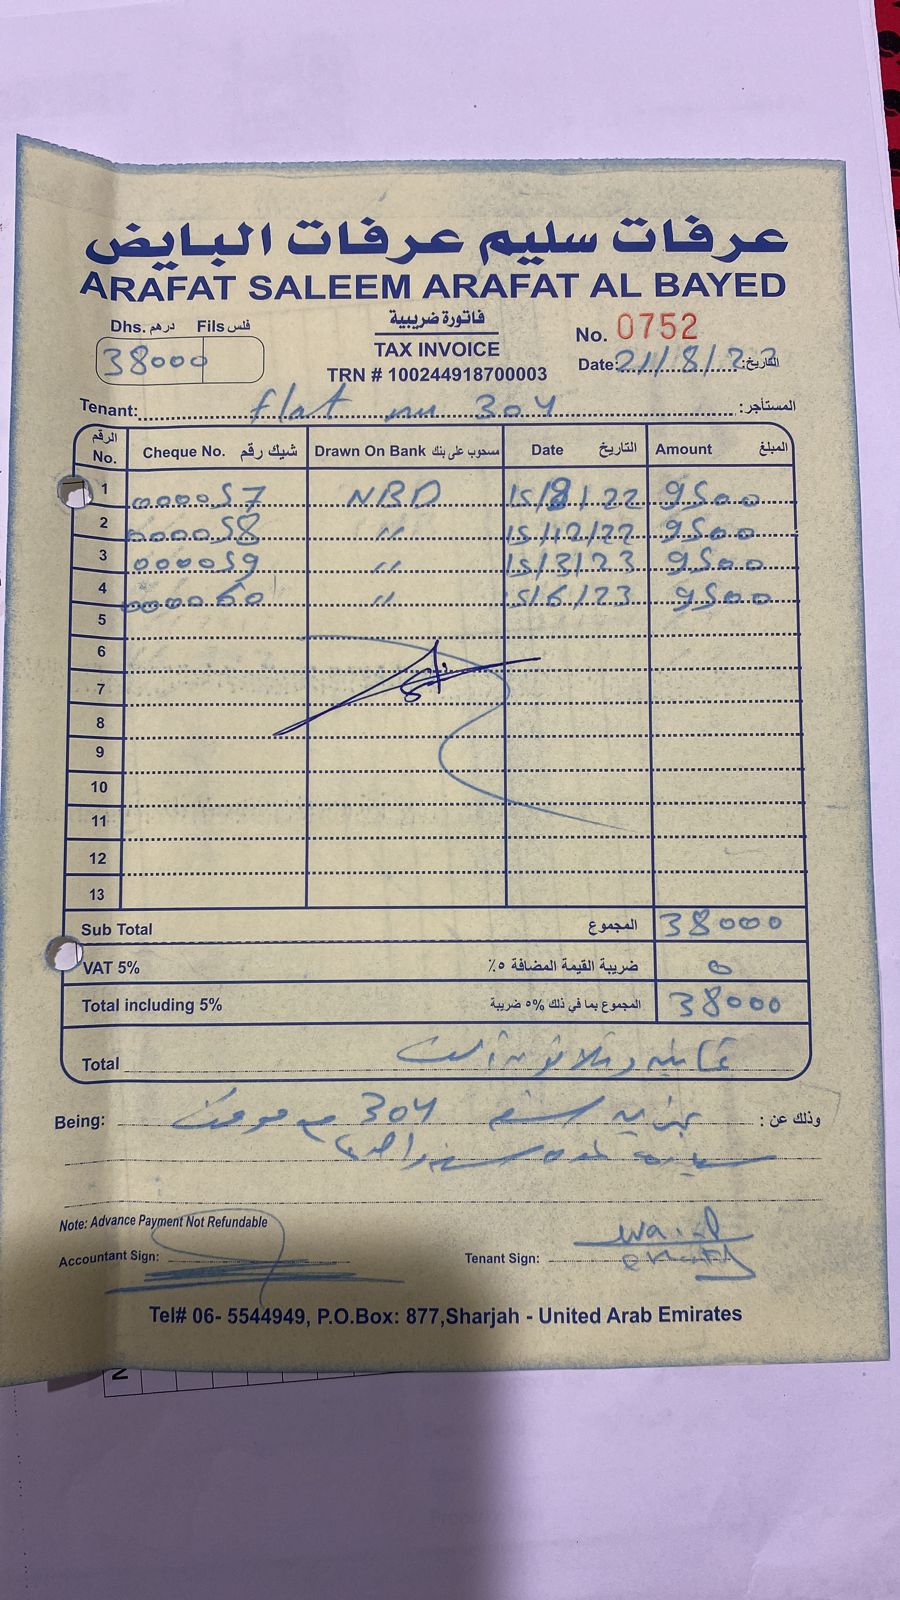 عرفات سليم عرفات البايض
ARAFAT SALEEM ARAFAT AL BAYED
Dhs. درهم Fils فلس
38000
فاتورة ضريبية
TAX INVOICE
TRN # 100244918700003
No. 0752
Date: 21/8/22 التاريخ:
Tenant: flat no 304 المستأجر:
الرقم No. Cheque No. شيك رقم Drawn On Bank مسحوب على بنك Date التاريخ Amount المبلغ
1 000057 NBD 15/9/22 9500
2 000058 " 15/12/22 9500
3 000059 " 15/3/23 9500
4 000060 " 15/6/23 9500
5
6
7
8
9
10
11
12
13
Sub Total المجموع 38000
VAT 5% ضريبة القيمة المضافة ٥٪ 0
Total including 5% المجموع بما في ذلك %٥ ضريبة 38000
Total ثمانية وثلاثون الف
Being: 304 وذلك عن:
لمدة سنة واحدة
Note: Advance Payment Not Refundable
Accountant Sign: Tenant Sign:
Tel# 06- 5544949, P.O.Box: 877,Sharjah - United Arab Emirates